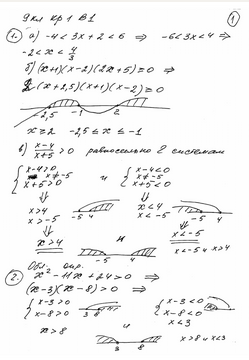 9кл кр 1 В1
1
1. а) -4 < 3x + 2 < 6 ⇒ -6 < 3x < 4 ⇒
-2 < x < 4/3
б) (x+1)(x-2)(2x+5) ≥ 0 ⇒
2(x+2,5)(x+1)(x-2) = 0
-2,5 -1 2
x ≥ 2 -2,5 ≤ x ≤ -1
в) x-4/x+5 > 0 равносильно 2 системам
x-4>0 и x-4<0
x≠-5 x≠-5
x+5>0 x+5<0
⇓ ⇓
x>4 -5 4 x<4 -5 4
x>-5 x<-5
⇓ ⇓
x>4 и x<-5
-5 4 x<-5 и x>4
2. Обл. опр.
x² - 11x + 24 > 0 ⇒
(x-3)(x-8) > 0 ⇒
x-3>0 3 8 x-3<0
x-8>0 x-8<0
x>8 и x<3
3 8 x>8 и x<3